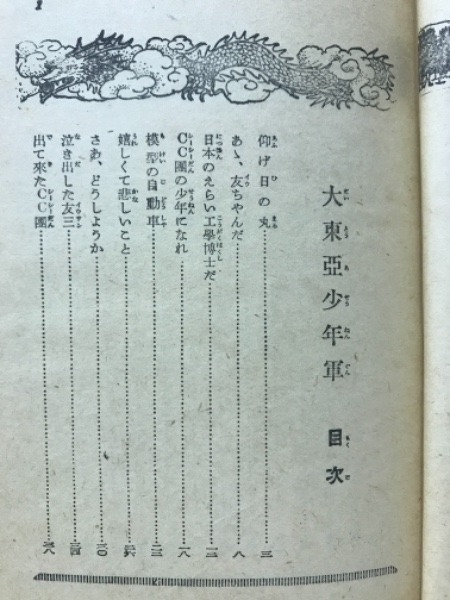 大東亞少年軍 目次
仰げ日の丸……三
あゝ、友ちやんだ……八
日本のえらい工學博士だ……一三
CC團の少年になれ……一八
模型の自動車……二三
嬉しくて悲しいこと……二六
さあ、どうしようか……三〇
泣き出した友三……三四
出て來たCC團……三八